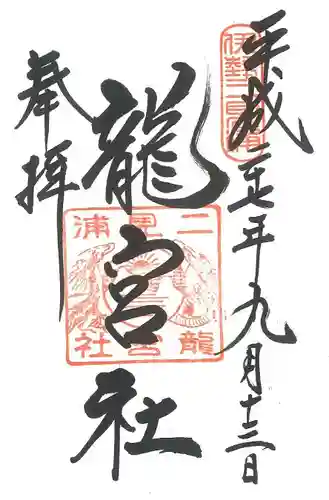 平成二七年九月十三日
龍宮社
奉拝
伊勢二見浦
二見浦
龍宮社